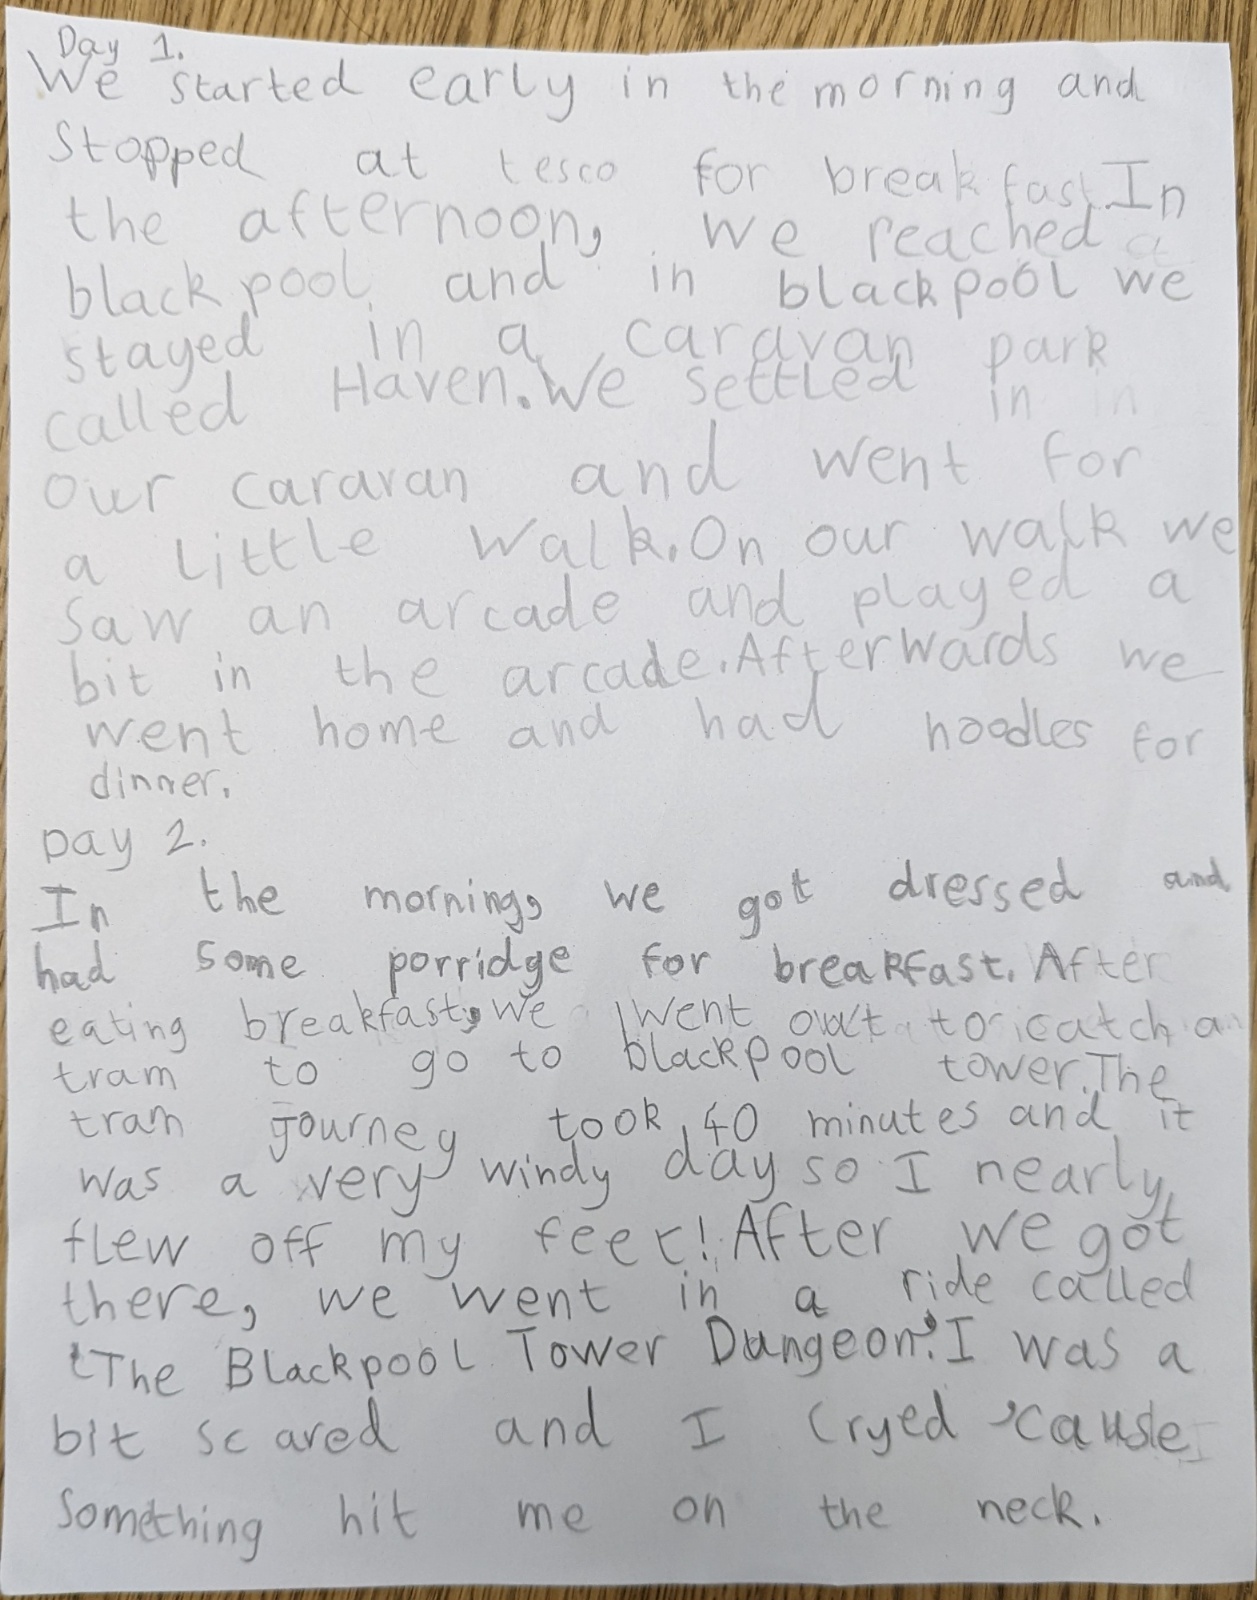 Day 1.
We started early in the morning and
Stopped at tesco for breakfast. In
the afternoon, we reached
blackpool and in blackpool we
stayed in a caravan park
called Haven. We settled in
our caravan and went for
a little walk. On our walk we
saw an arcade and played a
bit in the arcade. Afterwards we
went home and had noodles for
dinner.
Day 2.
In the morning, we got dressed and
had some porridge for breakfast. After
eating breakfast, we went out to catch a
tram to go to blackpool tower. The
tram journey took 40 minutes and it
was a very windy day so I nearly
flew off my feet! After we got
there, we went in a ride called
'The Blackpool Tower Dungeon'. I was a
bit scared and I cryed 'cause
something hit me on the neck.